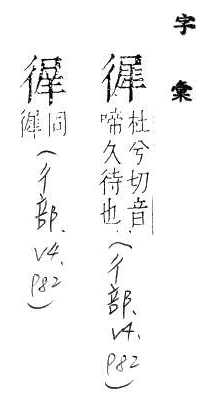 字彙
徲
杜兮切音
啼久待也.(彳部.V4.P82)
同
徲(彳部.V4.P82)